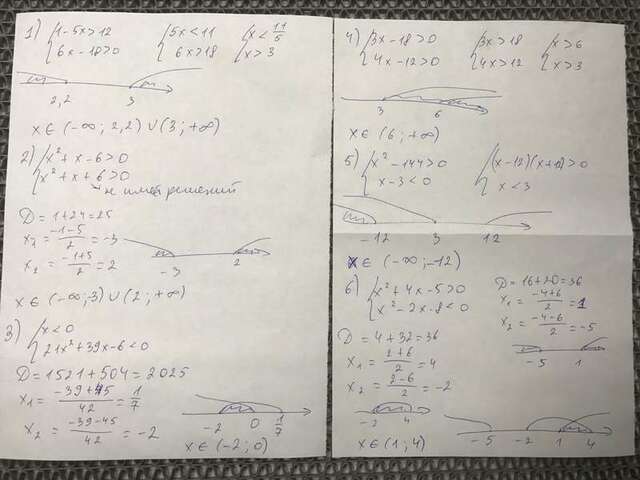 1) {1-5x>12 {5x<11 {x<11/5
{6x-18>0 {6x>18 {x>3
2,2 3
x∈(-∞; 2,2)∪(3; +∞)
2) {x²+x-6>0
{x²+x+6>0
не имеет решений
D=1+24=25
x₁=(-1-5)/2=-3
x₂=(-1+5)/2=2
-3 2
x∈(-∞;-3)∪(2; +∞)
3) {x<0
{21x²+39x-6<0
D=1521+504=2025
x₁=(-39+45)/42=1/7
x₂=(-39-45)/42=-2
-2 0 1/7
x∈(-2; 0)
4) {3x-18>0 {3x>18 {x>6
{4x-12>0 {4x>12 {x>3
3 6
x∈(6; +∞)
5) {x²-144>0 {(x-12)(x+12)>0
{x-3<0 {x<3
-12 3 12
x∈(-∞;-12)
6) {x²+4x-5>0
{x²-2x-8<0
D=16+20=36
x₁=(-4+6)/2=1
x₂=(-4-6)/2=-5
-5 1
D=4+32=36
x₁=(2+6)/2=4
x₂=(2-6)/2=-2
-2 4
-5 -2 1 4
x∈(1; 4)